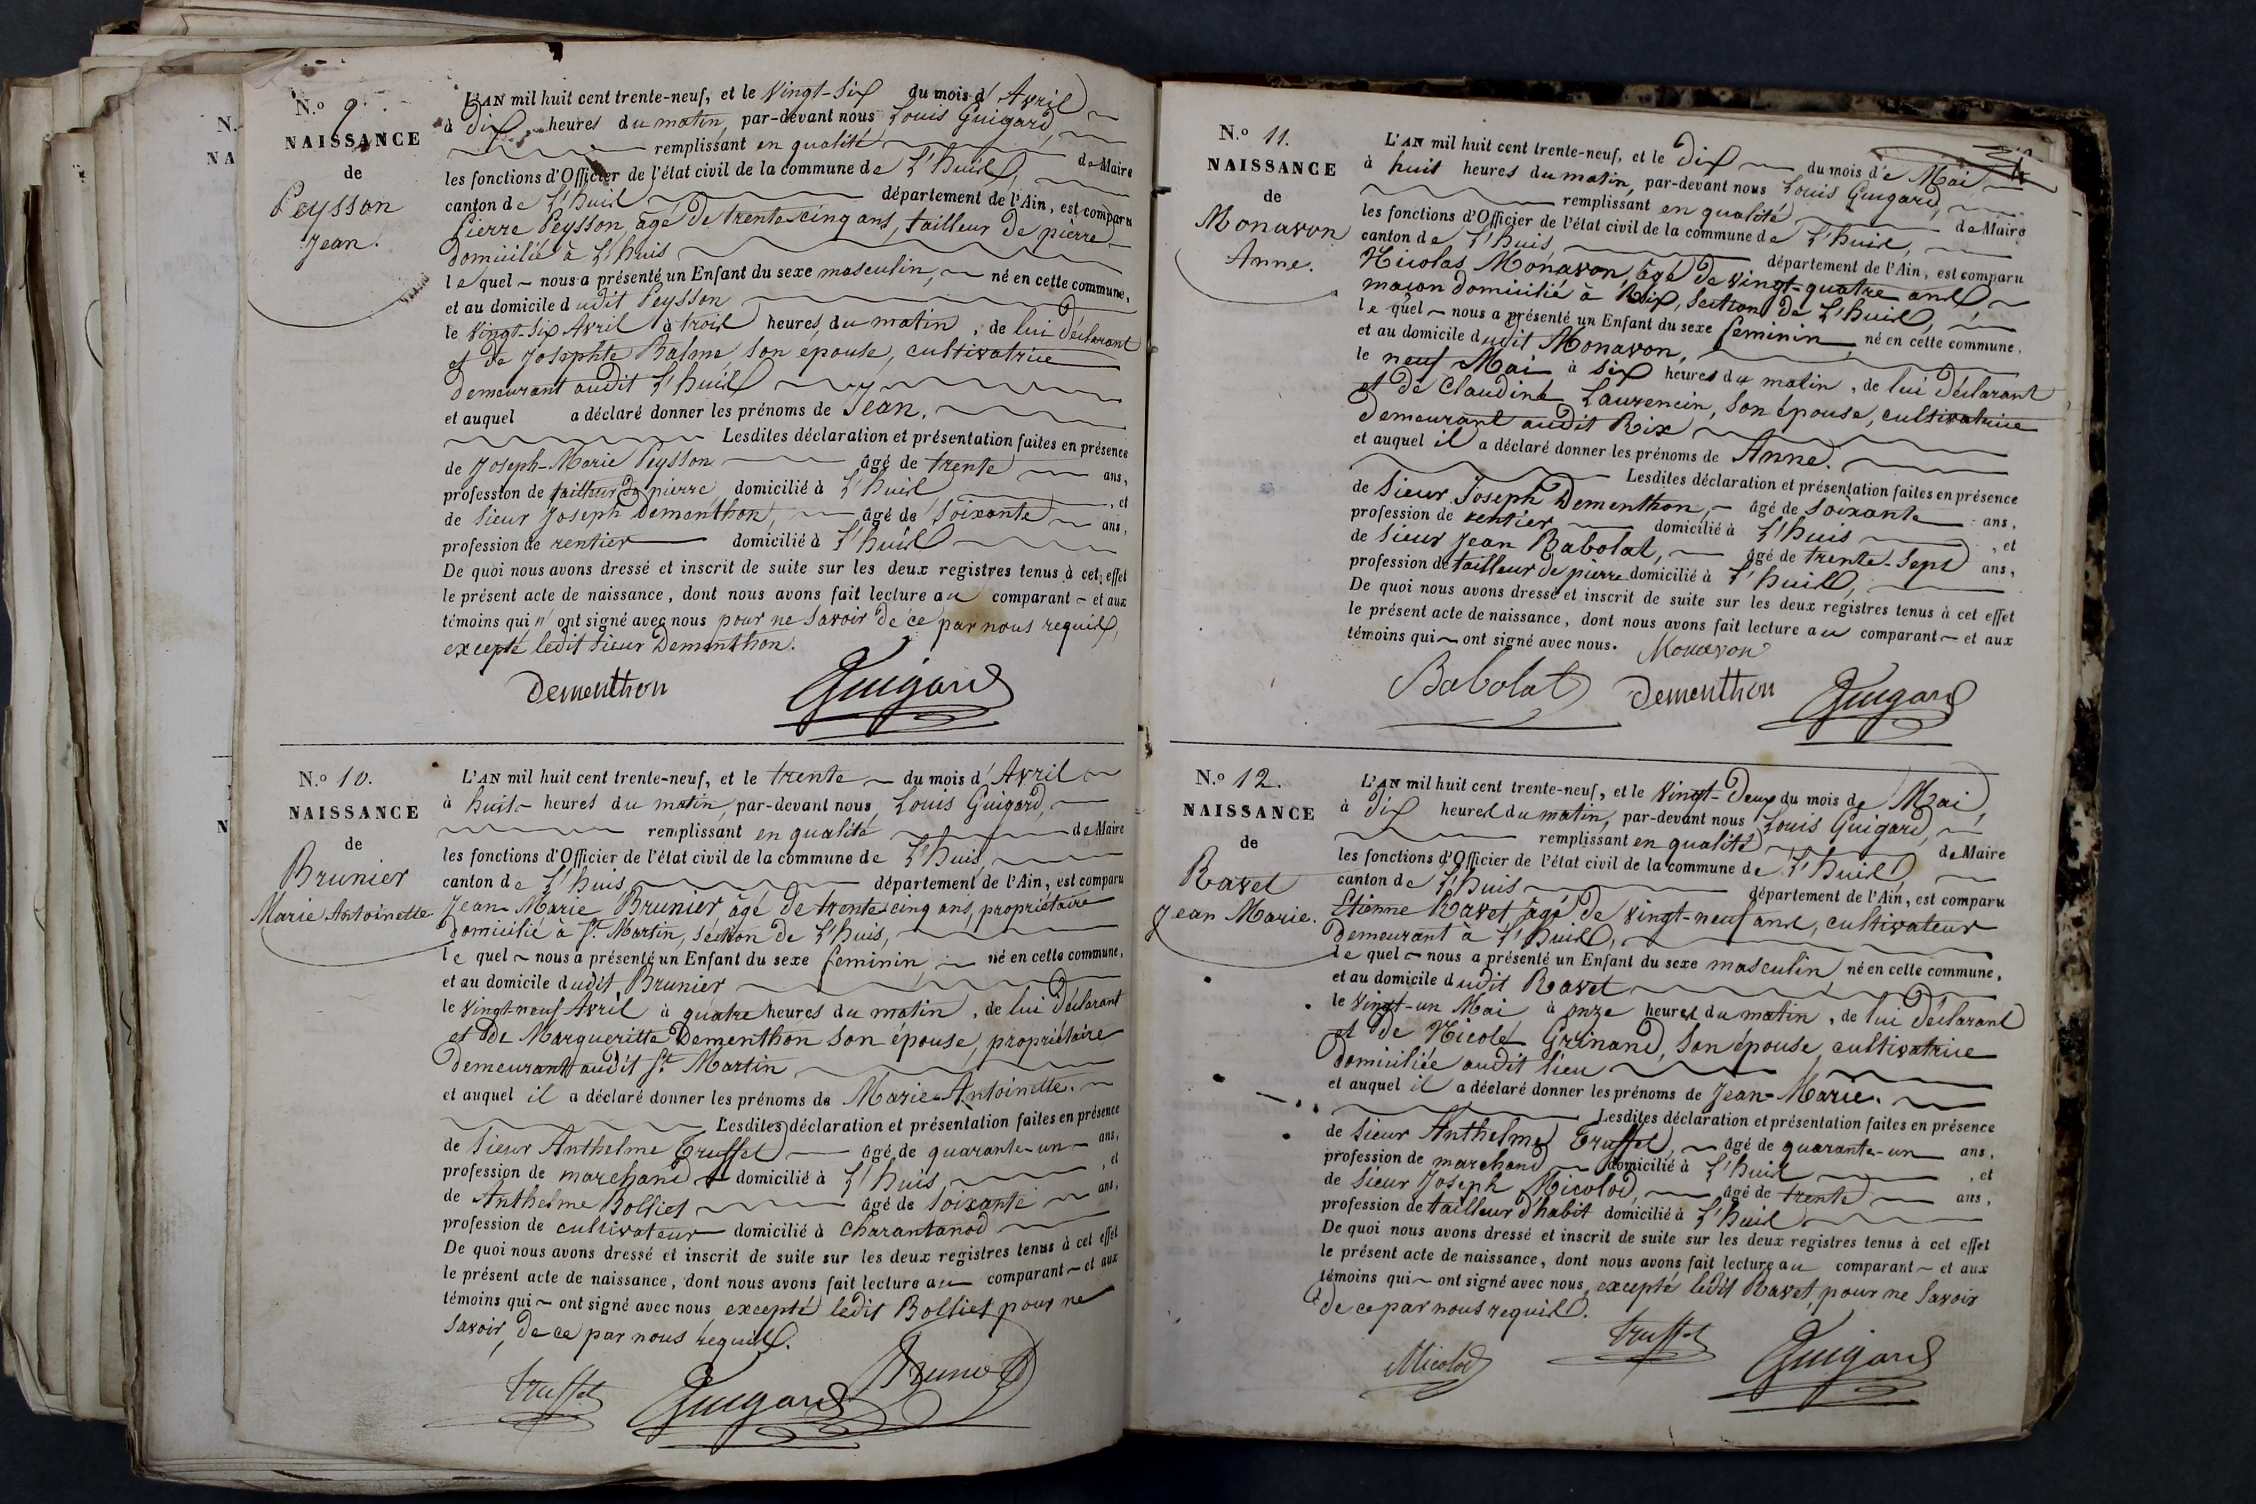 N.o 9.
NAISSANCE
de
Peysson
Jean.
L'AN mil huit cent trente-neuf, et le Vingt-Six du mois d'Avril
à Dix heures du matin, par-devant nous Louis Guigard,
remplissant en qualité de Maire
les fonctions d'Officier de l'état civil de la commune de L'huis,
canton de L'huis département de l'Ain, est comparu
Pierre Peysson, âgé de trente-cinq ans, tailleur de pierre
domicilié à L'huis
lequel nous a présenté un Enfant du sexe masculin, né en cette commune,
et au domicile dudit Peysson
le vingt-six Avril à trois heures du matin, de lui déclarant
et de Josephte Balme son épouse, cultivatrice
demeurant audit L'huis
et auquel a déclaré donner les prénoms de Jean.
Lesdites déclaration et présentation faites en présence
de Joseph-Marie Peysson âgé de trente ans,
profession de tailleur de pierre domicilié à L'huis, et
de Sieur Joseph Dementhon, âgé de Soixante ans,
profession de rentier domicilié à L'huis
De quoi nous avons dressé et inscrit de suite sur les deux registres tenus à cet effet
le présent acte de naissance, dont nous avons fait lecture au comparant et aux
témoins qui n'ont signé avec nous pour ne savoir de ce par nous requis,
excepté ledit Sieur Dementhon.
Dementhon Guigard
N.o 10.
NAISSANCE
de
Brunier
Marie Antoinette
L'AN mil huit cent trente-neuf, et le trente du mois d'Avril
à huit heures du matin, par-devant nous, Louis Guigard,
remplissant en qualité de Maire
les fonctions d'Officier de l'état civil de la commune de L'huis,
canton de L'huis département de l'Ain, est comparu
Jean-Marie Brunier, âgé de trente-cinq ans, propriétaire
domicilié à St. Martin, section de L'huis,
lequel nous a présenté un Enfant du sexe feminin, né en cette commune,
et au domicile dudit Brunier
le vingt-neuf Avril à quatre heures du matin, de lui déclarant
et de Margueritte Dementhon son épouse, propriétaire
demeurant audit St. Martin
et auquel il a déclaré donner les prénoms de Marie-Antoinette.
Lesdites déclaration et présentation faites en présence
de Sieur Anthelme Truffet âgé de quarante-un ans,
profession de marchand domicilié à L'huis, et
de Anthelme Bolliet âgé de soixante ans,
profession de cultivateur domicilié à Charantanod
De quoi nous avons dressé et inscrit de suite sur les deux registres tenus à cet effet
le présent acte de naissance, dont nous avons fait lecture au comparant et aux
témoins qui ont signé avec nous excepté ledit Bolliet pour ne
savoir, de ce par nous requis.
Truffet Guigard Brunier
N.o 11.
NAISSANCE
de
Monavon
Anne.
L'AN mil huit cent trente-neuf, et le Dix du mois de Mai
à huit heures du matin, par-devant nous Louis Guigard,
remplissant en qualité de Maire
les fonctions d'Officier de l'état civil de la commune de L'huis,
canton de L'huis département de l'Ain, est comparu
Nicolas Monavon, âgé de vingt-quatre ans,
maçon domicilié à Rix, section de L'huis,
lequel nous a présenté un Enfant du sexe feminin né en cette commune,
et au domicile dudit Monavon,
le neuf Mai à six heures du matin, de lui déclarant
et de Claudine Laurencin, son épouse, cultivatrice
demeurant audit Rix
et auquel il a déclaré donner les prénoms de Anne.
Lesdites déclaration et présentation faites en présence
de Sieur Joseph Dementhon, âgé de Soixante ans,
profession de rentier domicilié à L'huis, et
de Sieur Jean Babolat, âgé de trente-Sept ans,
profession de tailleur de pierre domicilié à L'huis,
De quoi nous avons dressé et inscrit de suite sur les deux registres tenus à cet effet
le présent acte de naissance, dont nous avons fait lecture au comparant et aux
témoins qui ont signé avec nous. Monavon
Babolat Dementhon Guigard
N.o 12.
NAISSANCE
de
Ravet
Jean Marie.
L'AN mil huit cent trente-neuf, et le Vingt-Deux du mois de Mai,
à Dix heures du matin, par-devant nous Louis Guigard,
remplissant en qualité de Maire
les fonctions d'Officier de l'état civil de la commune de L'huis,
canton de L'huis département de l'Ain, est comparu
Etienne Ravet, âgé de vingt-neuf ans, cultivateur
demeurant à L'huis,
lequel nous a présenté un Enfant du sexe masculin né en cette commune,
et au domicile dudit Ravet
le vingt-un Mai à onze heures du matin, de lui déclarant
et de Nicole Grinand, son épouse, cultivatrice
domiciliée audit lieu
et auquel il a déclaré donner les prénoms de Jean-Marie.
Lesdites déclaration et présentation faites en présence
de Sieur Anthelme Truffet, âgé de quarante-un ans,
profession de marchand domicilié à L'huis, et
de Sieur Joseph Micolod, âgé de trente ans,
profession de tailleur d'habit domicilié à L'huis
De quoi nous avons dressé et inscrit de suite sur les deux registres tenus à cet effet
le présent acte de naissance, dont nous avons fait lecture au comparant et aux
témoins qui ont signé avec nous, excepté ledit Ravet, pour ne savoir
de ce par nous requis.
Micolod Truffet Guigard